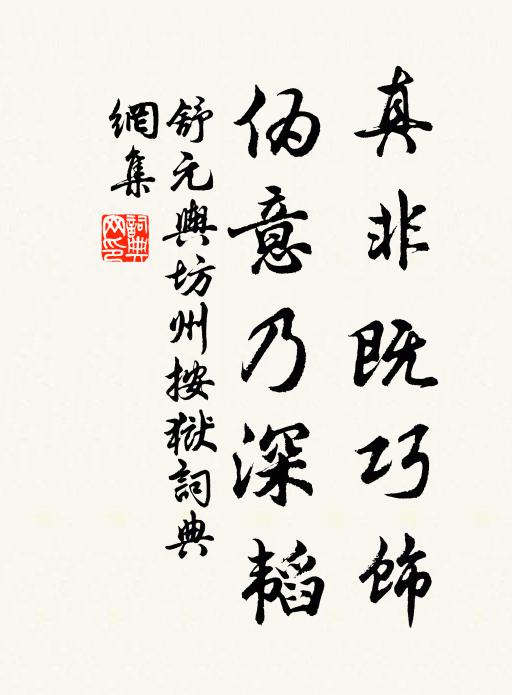 真非既巧饰
伪意乃深韬
舒元輿坊州按獄詞典
網集
詞典
网印